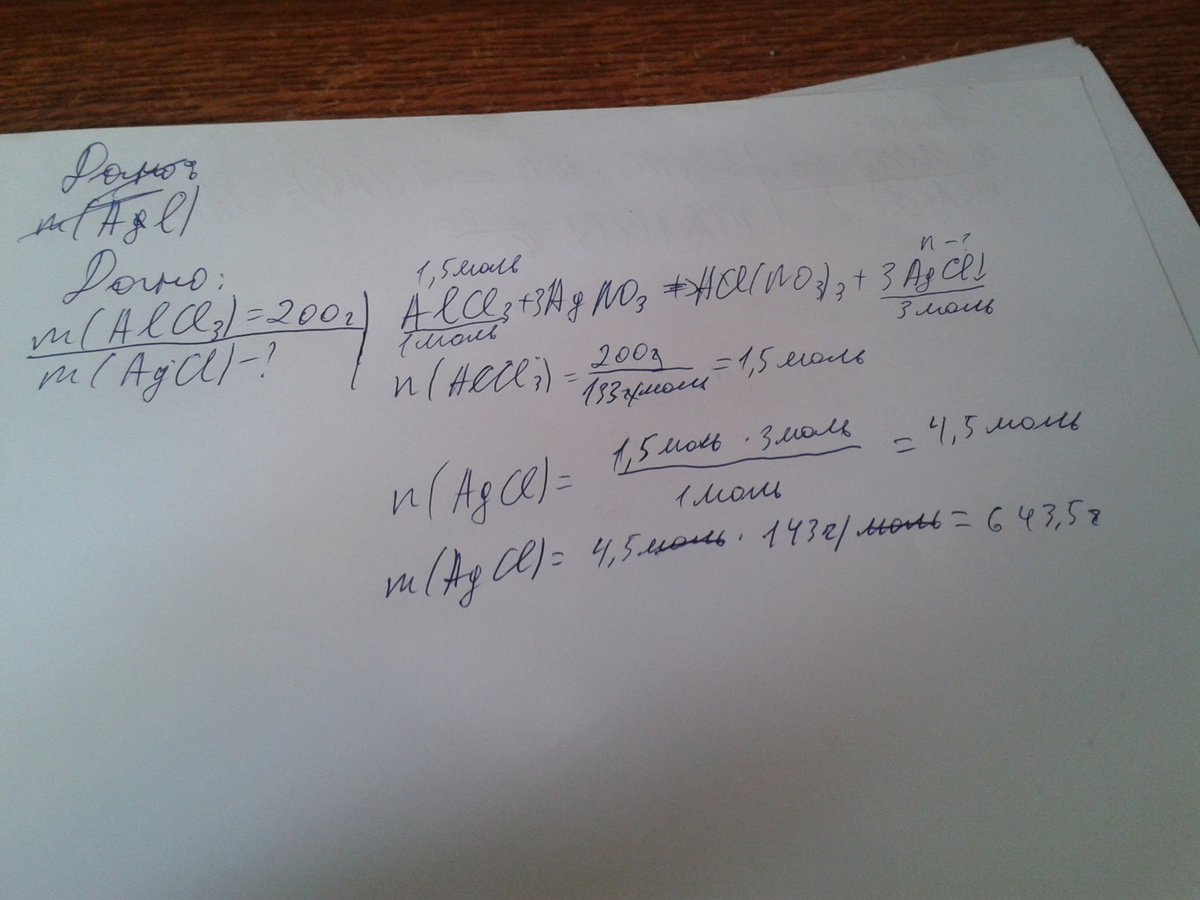 Дано:
m(AgCl)
Дано:
m(AlCl₃) = 200г
m(AgCl) - ?
1,5 моль n - ?
AlCl₃ + 3AgNO₃ → Al(NO₃)₃ + 3AgCl↓
1 моль 3 моль
n(AlCl₃) = 200г / 133г/моль = 1,5 моль
n(AgCl) = 1,5 моль · 3 моль / 1 моль = 4,5 моль
m(AgCl) = 4,5 моль · 143г/моль = 643,5г